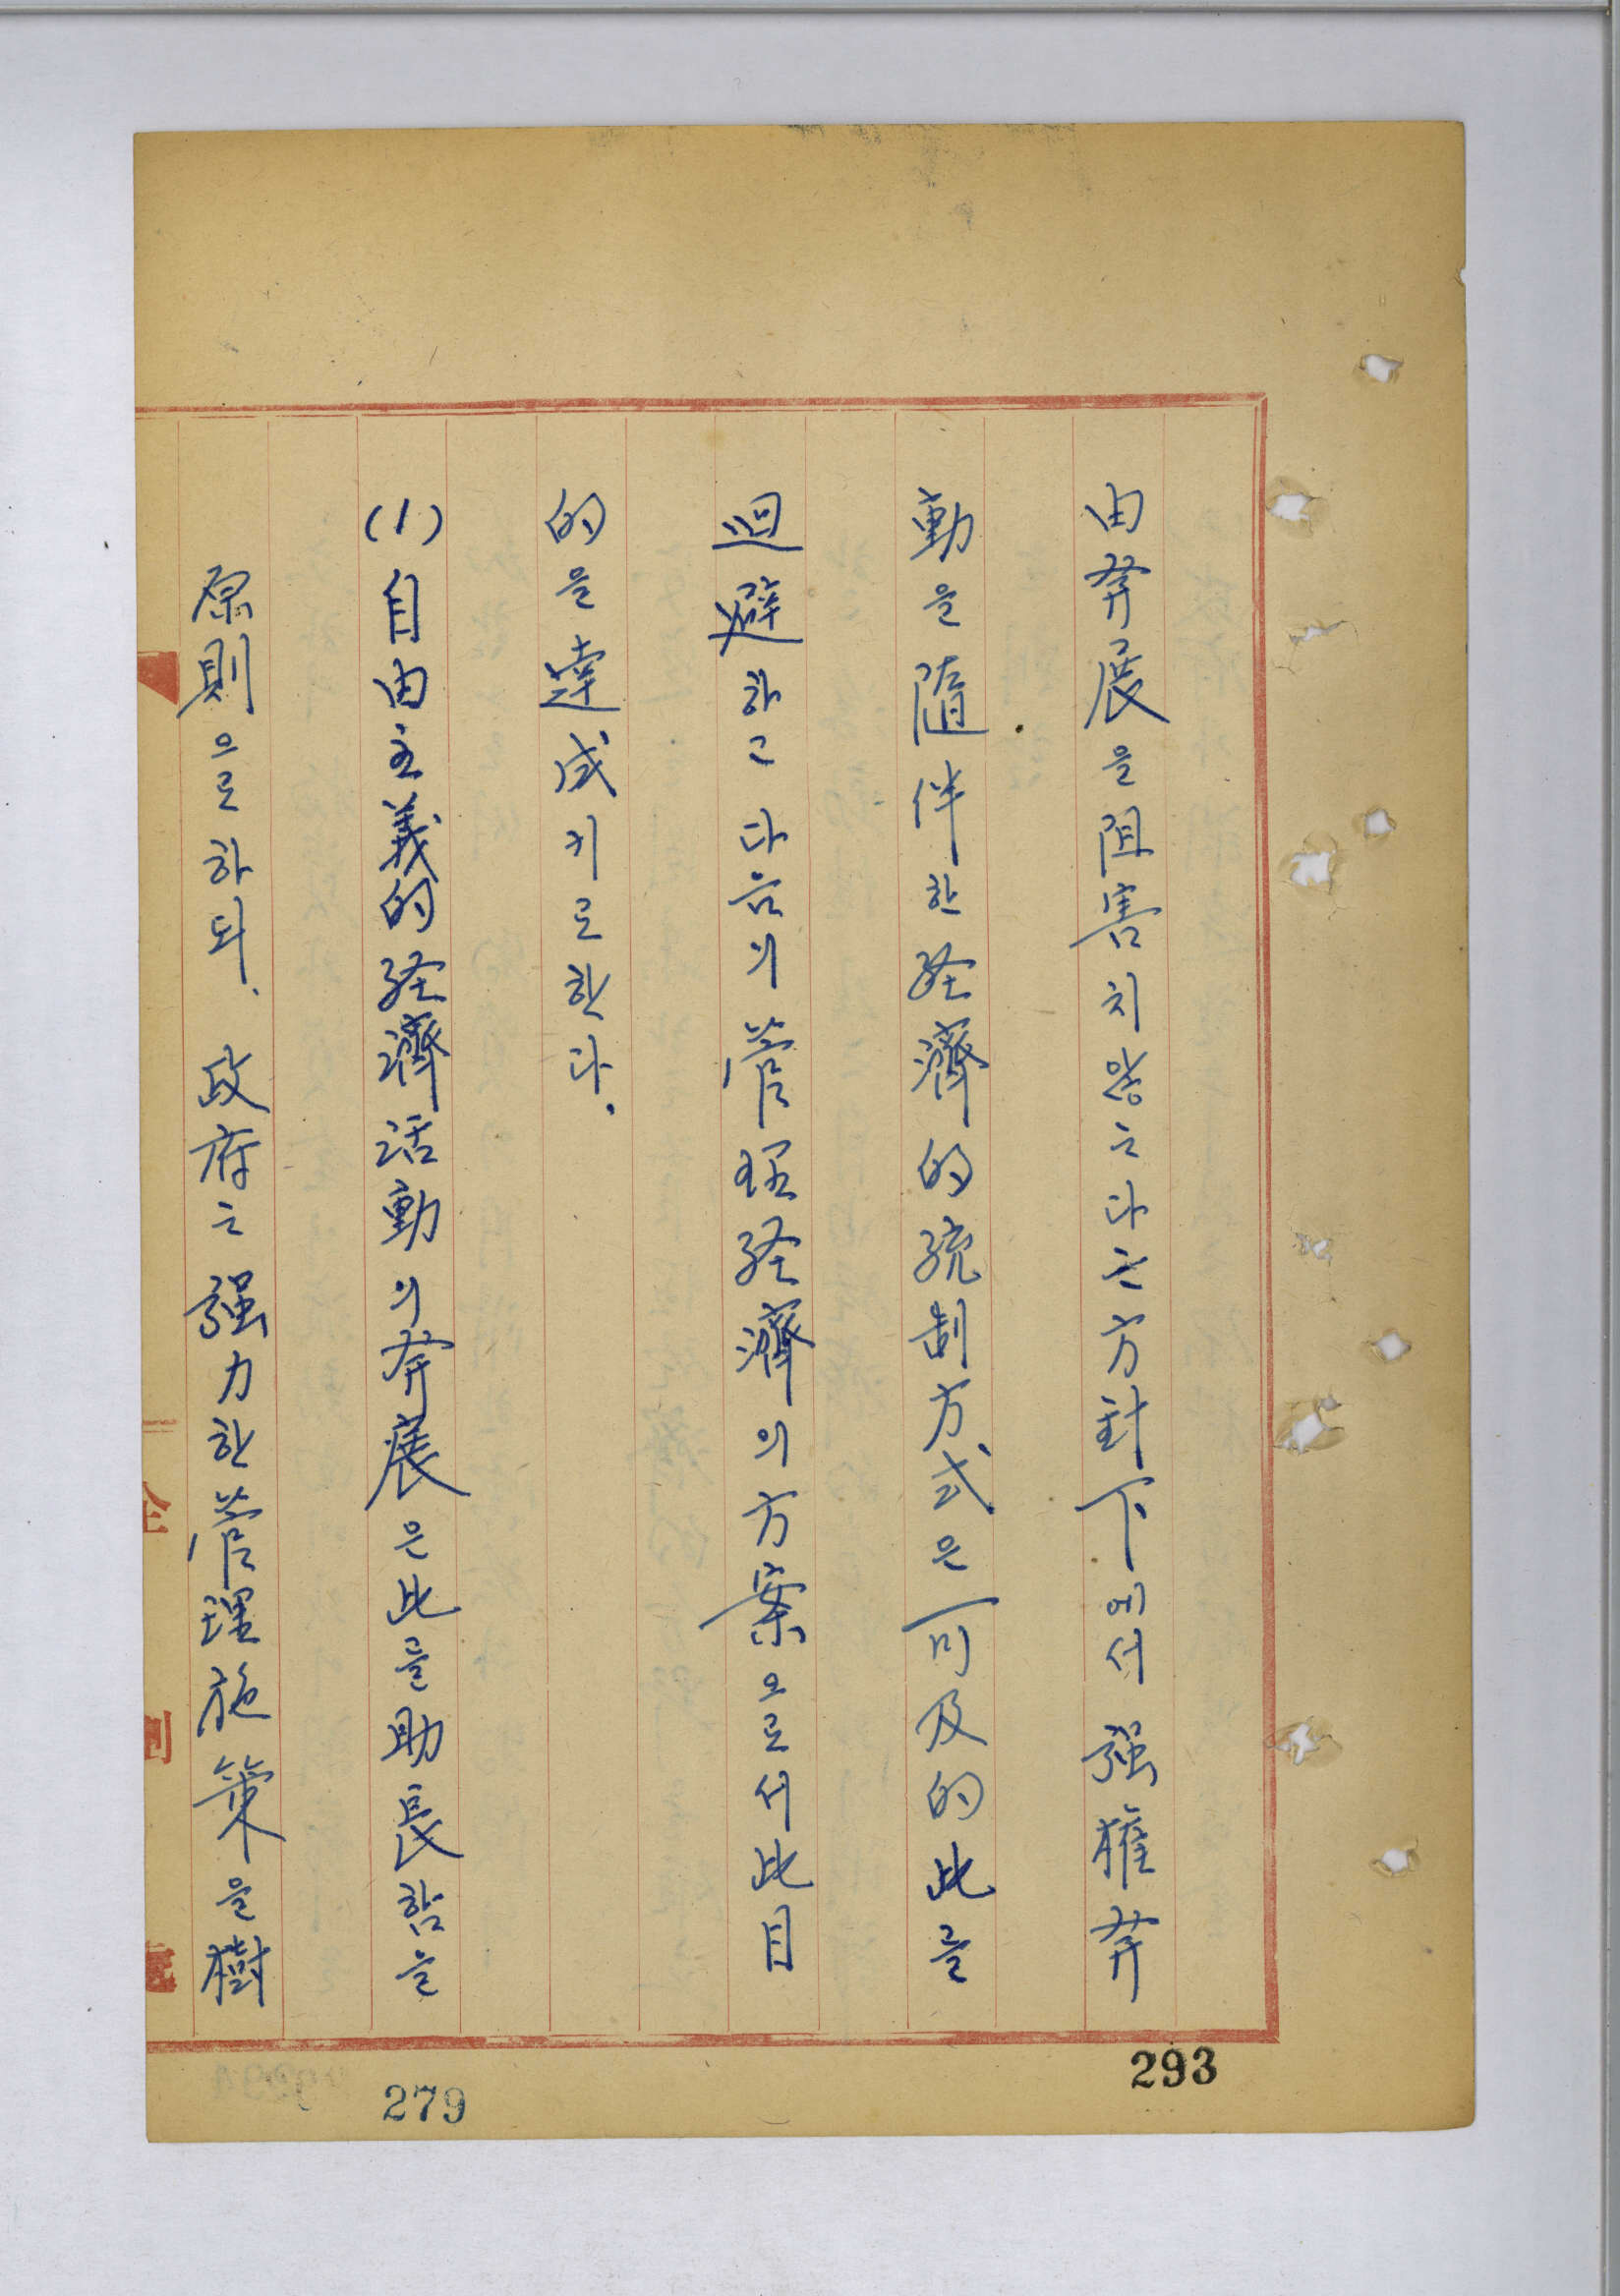 由発展을 阻害치 않는다는 方針下에서 強権発
動을 隨伴한 経濟的 統制方式은 可及的 此를
廻避하고 다음의 管理経濟의 方案으로서 此目
的을 達成키로 한다.
(1) 自由主義的 経濟活動의 発展은 此를 助長함을
原則으로 하되. 政府는 強力한 管理施策을 樹
293
279